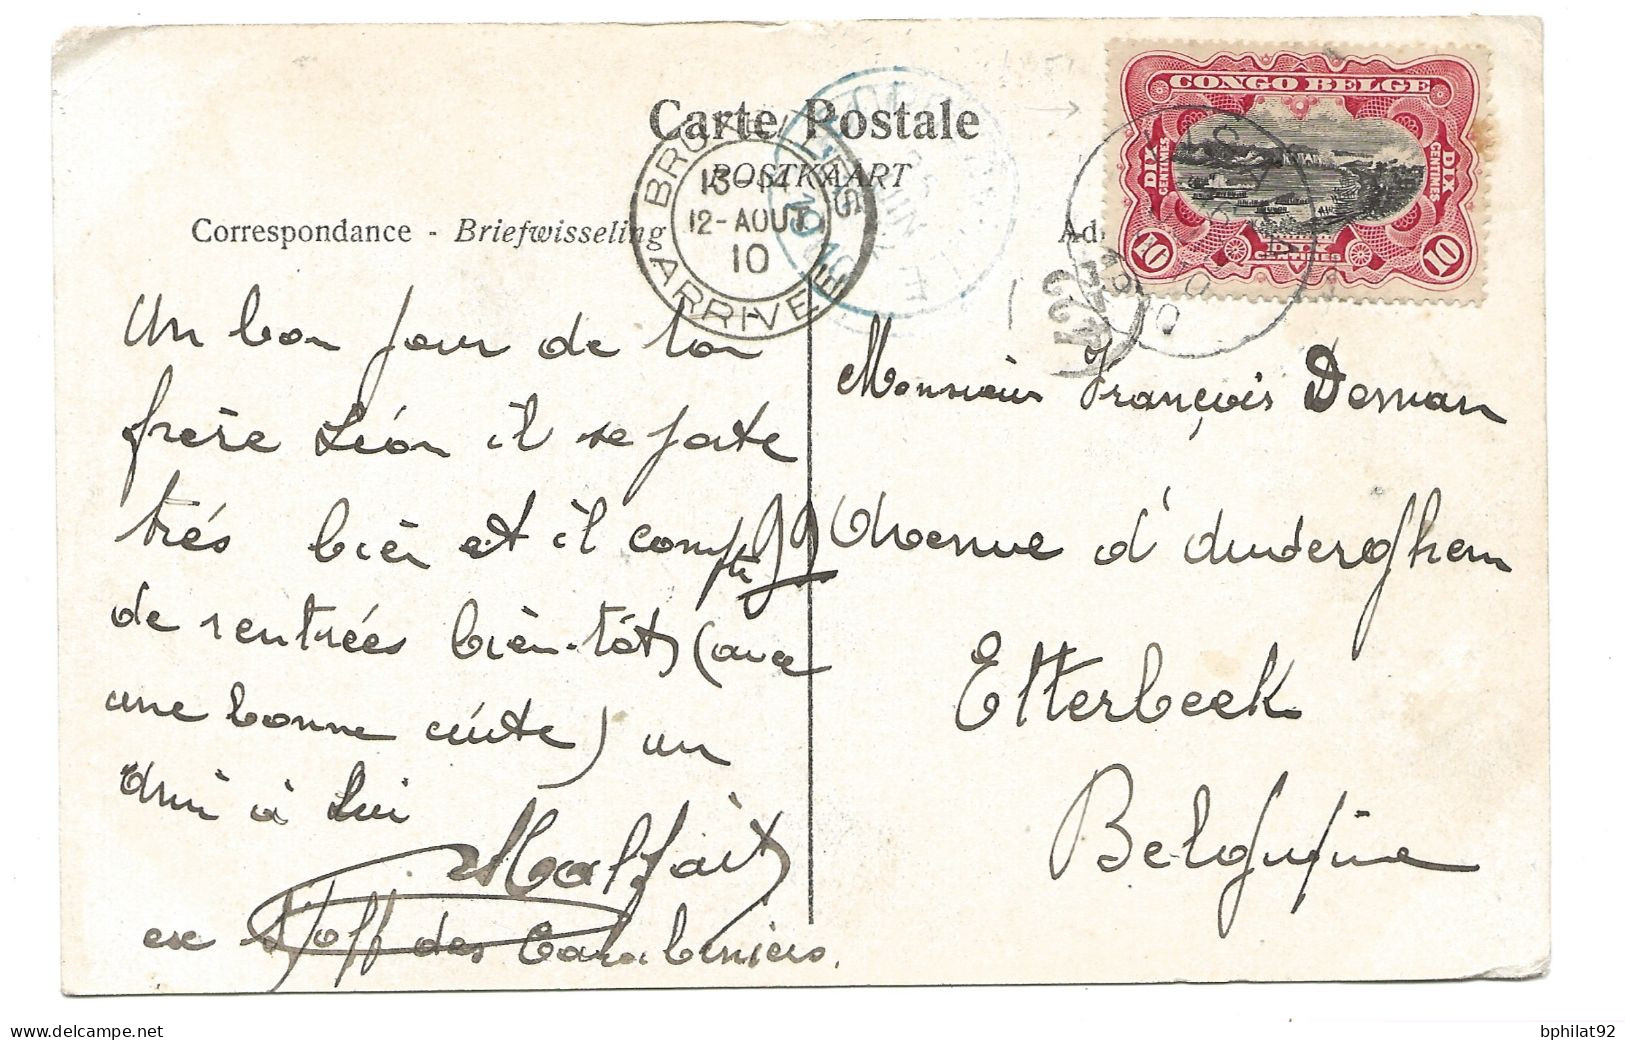 Carte Postale
POSTKAART
Correspondance - Briefwisseling
Ad
CONGO BELGE
DIX CENTIMES
DIX CENTIMES
10 DIX CENTIMES 10
BRUXELLES
13-14
12-AOUT
10
ARRIVEE
Un bon jour de ton
frère Léon il se porte
très bièn et il compte
de rentrées bièn-tôt (avec
une bonne cuite) un
Ami à Lui
Malfait
ex S/off des Carabiniers.
Monsieur François Deman
99 Avenue d'Auderghem
Etterbeek
Belgique
bphilat92